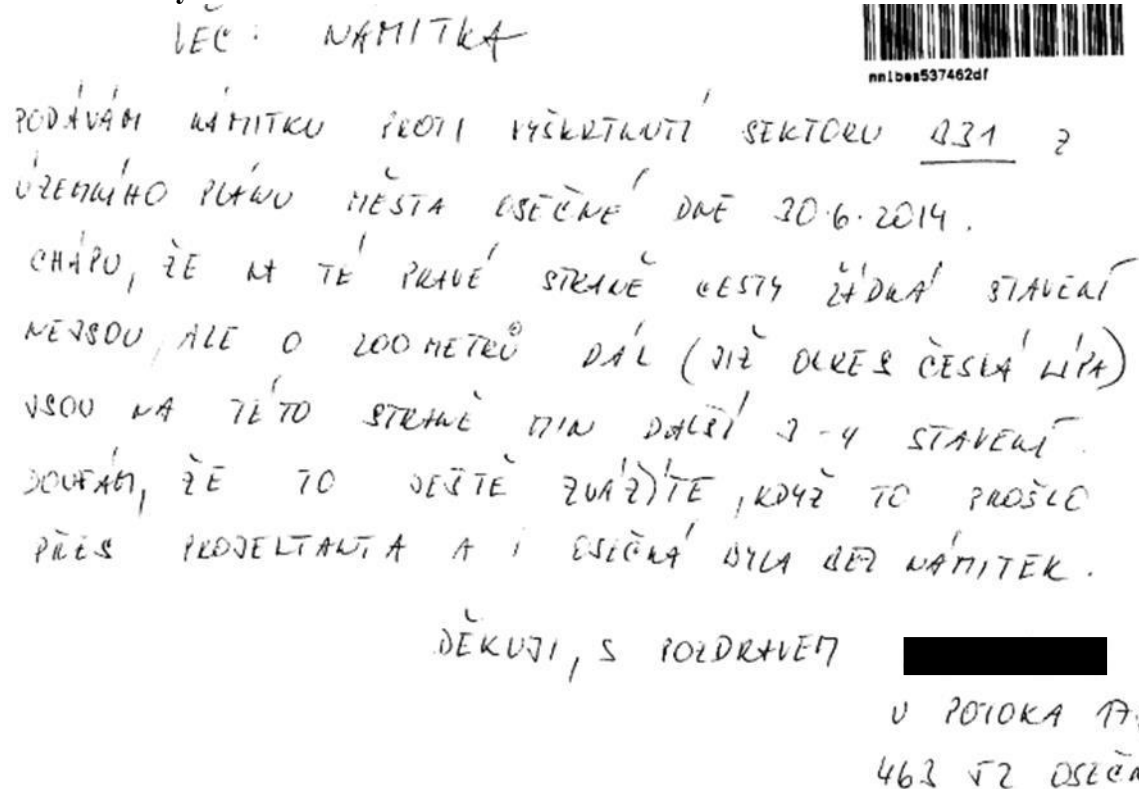 VĚC: NÁMITKA
nnlbes537462df
PODÁVÁM NÁMITKU PROTI VYŠKRTNUTÍ SEKTORU B31 Z
ÚZEMNÍHO PLÁNU MĚSTA OSEČNÉ DNE 30.6.2014.
CHÁPU, ŽE NA TÉ PRAVÉ STRANĚ CESTY ŽÁDNÁ STAVENÍ
NEJSOU, ALE O 200 METRŮ DÁL (JIŽ OKRES ČESKÁ LÍPA)
JSOU NA TÉTO STRANĚ MIN DALŠÍ 3-4 STAVENÍ.
DOUFÁM, ŽE TO JEŠTĚ ZVÁŽÍTE, KDYŽ TO PROŠLO
PŘES PROJEKTANTA A I OSEČNÁ BYLA BEZ NÁMITEK.
DĚKUJI, S POZDRAVEM
U POTOKA
463 52 OSEČN